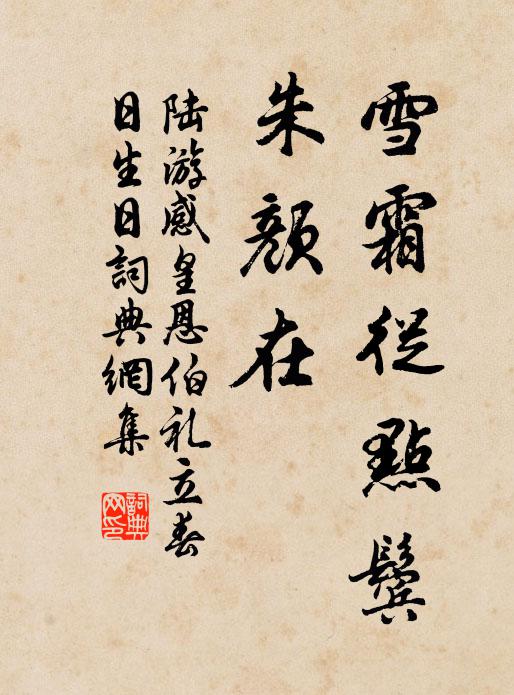 雪霜從點鬢
朱顏在
陆游感皇恩伯礼立春
日生日詞典網集
詞典网印